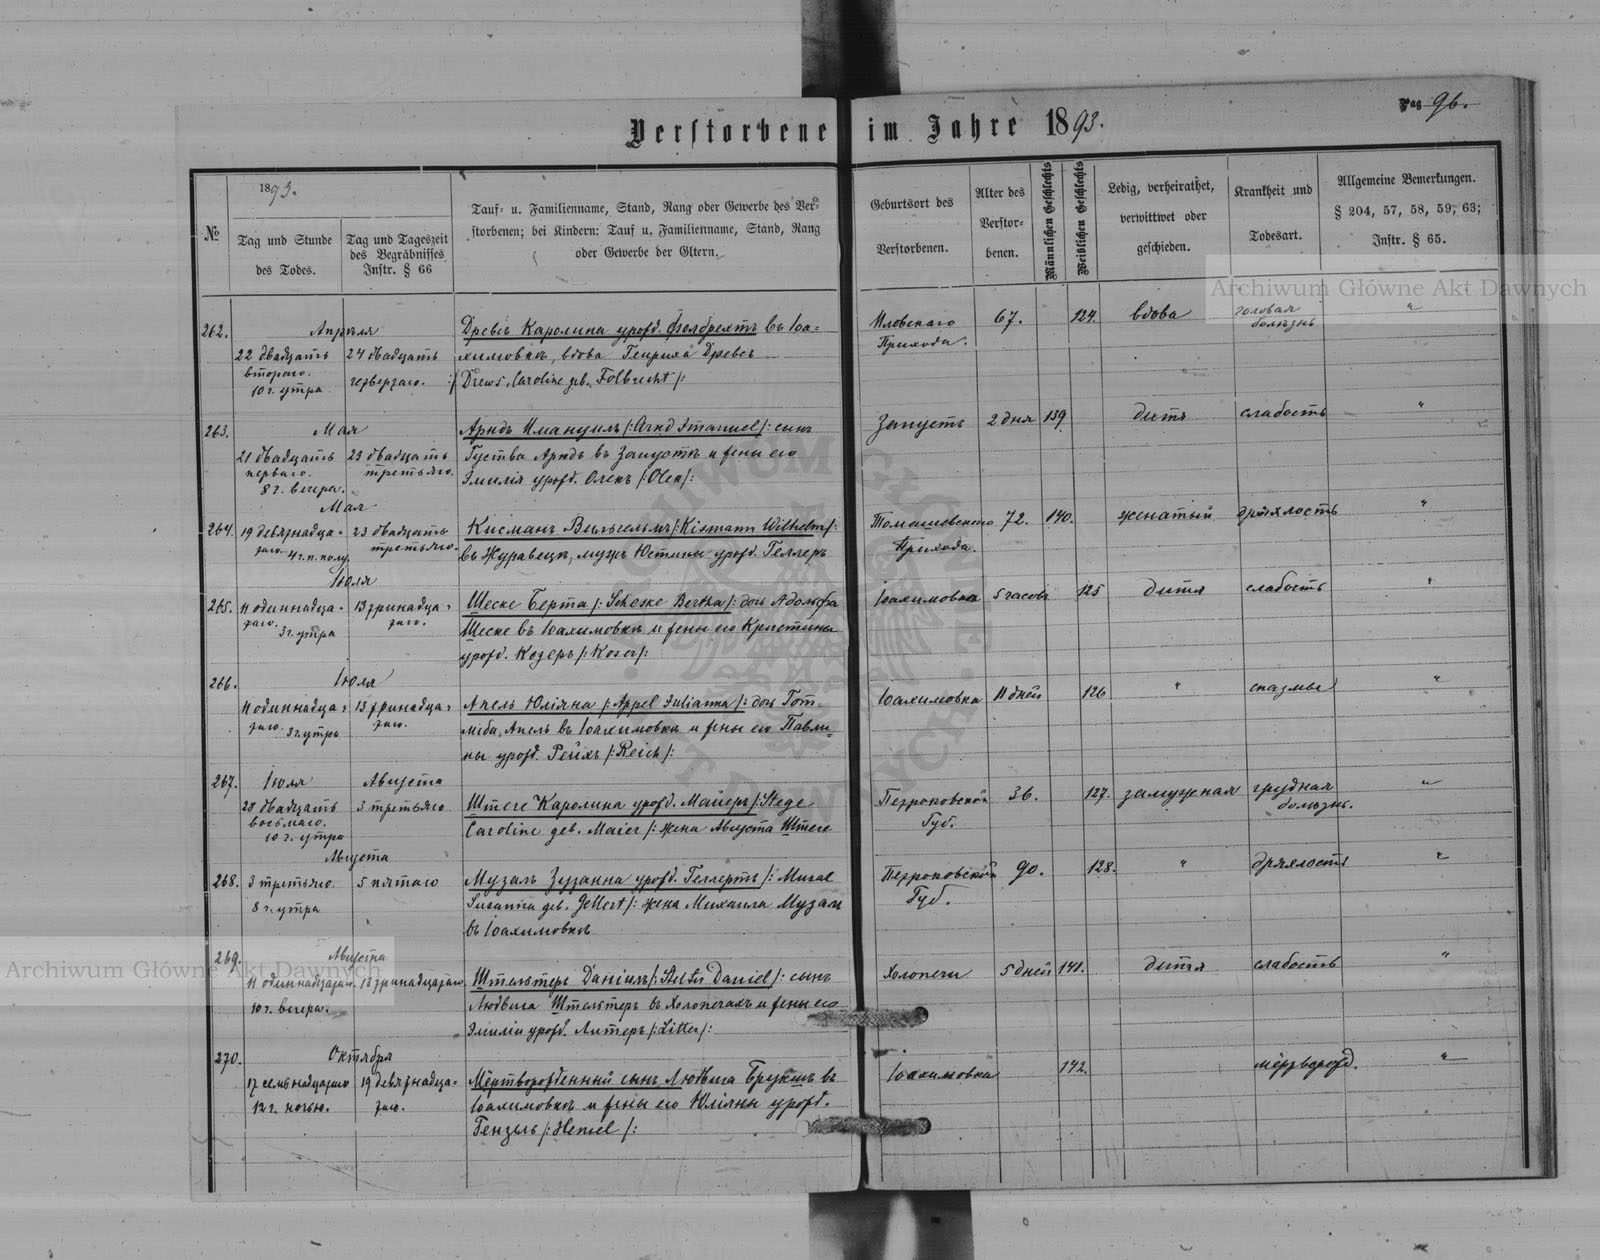 Pag 96.
Verstorbene im Jahre 1893.
№
1893.
Tag und Stunde
des Todes.
Tag und Tageszeit
des Begräbnisses
Instr. § 66
Tauf- u. Familienname, Stand, Rang oder Gewerbe des Ver-
storbenen; bei Kindern: Tauf u. Familienname, Stand, Rang
oder Gewerbe der Eltern.
Geburtsort des
Verstorbenen.
Alter des
Verstor-
benen.
Männlichen Geschlechts
Weiblichen Geschlechts
Ledig, verheirathet,
verwittwet oder
geschieden.
Krankheit und
Todesart.
Allgemeine Bemerkungen.
§ 204, 57, 58, 59, 63;
Instr. § 65.
262.
Апрѣля
22 двадцать
втораго.
10 ч. утра
24 двадцать
четвертаго.
Древсъ Каролина урожд. Фолбрехтъ въ Іоа=
химовкѣ, вдова Генриха Древсъ
/: Drews, Caroline geb. Folbrecht /:
Иловскаго
Прихода.
67.
124.
вдова
головая
болѣзнь
"
263.
Мая
21 двадцать
перваго.
8 ч. вечера.
23 двадцать
третьяго.
Арндъ Имануилъ /: Arnd Imanuel /: сынъ
Густава Арндъ въ Запустѣ и жены его
Эмилія урожд. Олекъ /: Olek /:
Запустъ
2 дня
139
дитя
слабость
"
264.
Мая
19 девятнадца-
таго. 4 ч. п. полу.
23 двадцать
третьяго.
Кисманъ Вильгельмъ /: Kismann Wilhelm /:
въ Журавецѣ, мужъ Юстины урожд. Геллеръ
Томашевскаго
Прихода.
72.
140.
женатый
дряхлость
"
265.
Іюля
11 одиннадца-
таго.
3 ч. утра
13 тринадца-
таго.
Шеске Берта /: Scheske Bertha /: дочь Адольфа
Шеске въ Іоахимовкѣ и жены его Кристины
урожд. Козеръ /: Koser /:
Іоахимовка
5 часовъ
125
дитя
слабость
"
266.
Іюля
11 одиннадца-
таго. 3 ч. утра
13 тринадца-
таго.
Апель Юліяна /: Appel Julianna /: дочь Гот-
либа Апель въ Іоахимовкѣ и жены его Павли-
ны урожд. Рейхъ /: Reich /:
Іоахимовка
11 дней
126
"
спазмы
"
267.
Іюля
28 двадцать
восьмаго.
10 ч. утра
Августа
3 третьяго
Штеге Каролина урожд. Майеръ /: Stege
Caroline geb. Maier /: жена Августа Штеге
Петроковской
Губ.
36.
127.
замужная
грудная
болѣзнь.
"
268.
Августа
3 третьяго.
8 ч. утра
5 пятаго
Музаль Зузанна урожд. Геллертъ /: Musal
Susanna geb. Gellert /: жена Михаила Музаль
въ Іоахимовкѣ
Петроковской
Губ.
90.
128.
"
дряхлость
"
269.
Августа
11 одиннадцатаго.
10 ч. вечера.
13 тринадцатаго.
Штельтеръ Даніилъ /: Stelter Daniel /: сынъ
Людвига Штельтеръ въ Холопечахъ и жены его
Эмиліи урожд. Литтеръ /: Litter /:
Холопечи
5 дней
141.
дитя
слабость
"
270.
Октября
17 семнадцатаго
12 ч. ночью.
19 девятнадца-
таго.
Мёртворожденный сынъ Людвига Брукшъ въ
Іоахимовкѣ и жены его Юліяны урожд.
Гензель /: Hensel /:
Іоахимовка
142.
мёртворожд.
"
Archiwum Główne Akt Dawnych
Archiwum Główne Akt Dawnych